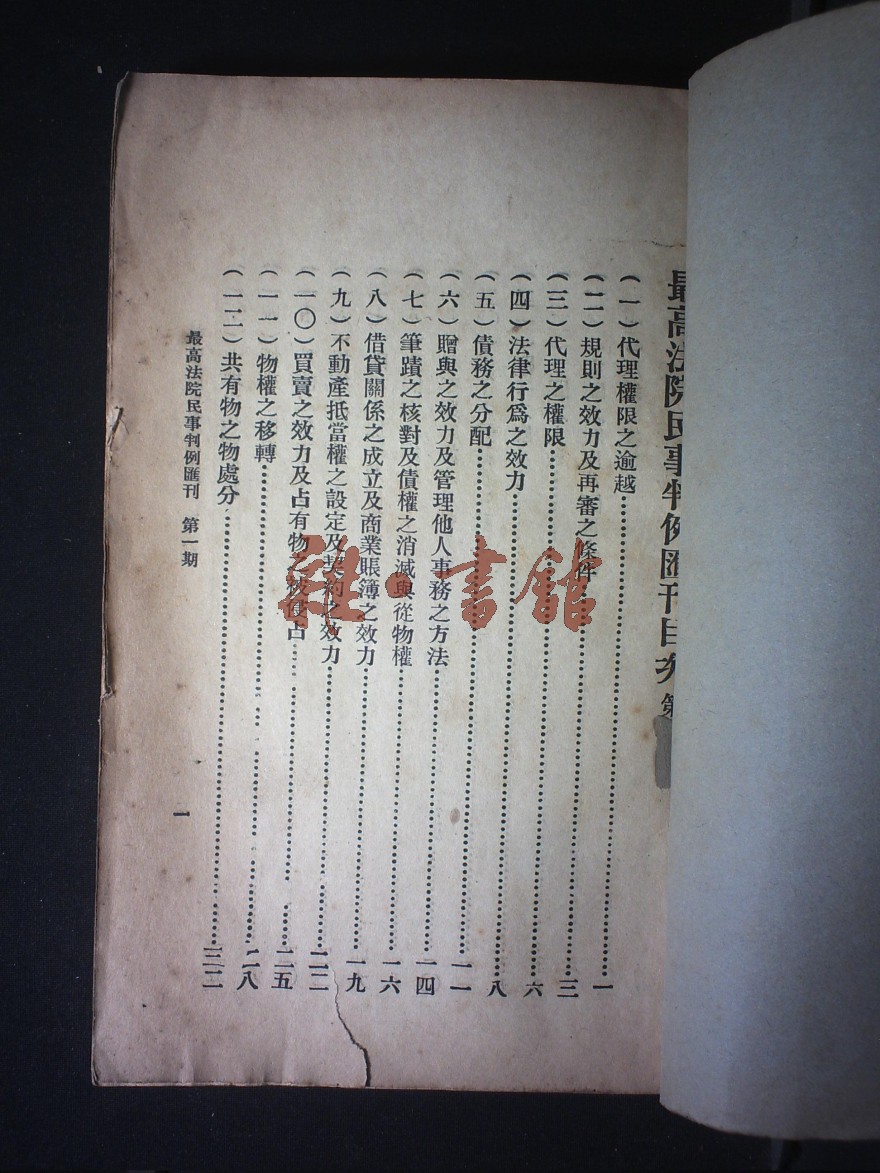 最高法院民事判例匯刊目次 第
(一)代理權限之逾越……一
(二)規則之效力及再審之條件……三
(三)代理之權限……六
(四)法律行爲之效力……八
(五)債務之分配……一一
(六)贈與之效力及管理他人事務之方法……一四
(七)筆蹟之核對及債權之消滅與從物權……一六
(八)借貸關係之成立及商業賬簿之效力……一九
(九)不動產抵當權之設定及契約之效力……二二
(一〇)買賣之效力及占有物之被侵占……二五
(一一)物權之移轉……二八
(一二)共有物之物處分……三二
最高法院民事判例匯刊 第一期
一
雜·書館